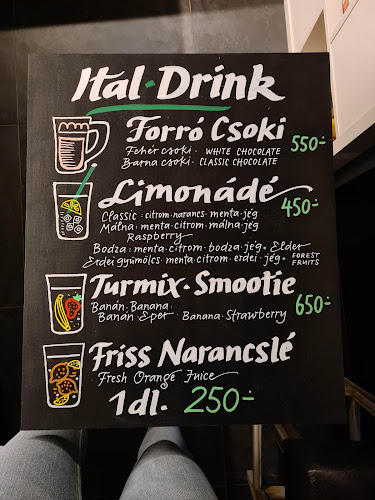 Ital · Drink
Forró Csoki 550.-
Fehér csoki · WHITE CHOCOLATE
Barna csoki · CLASSIC CHOCOLATE
Limonádé 450.-
Classic · citrom · narancs · menta · jég
Málna · menta · citrom · málna · jég
Raspberry
Bodza : menta · citrom · bodza · jég · Elder
Erdei gyümölcs · menta · citrom · erdei · jég · FOREST FRUITS
Turmix · Smootie 650.-
Banán · Banana ·
Banán Eper · Banana · Strawberry
Friss Narancslé
Fresh Orange Juice
1dl. 250.-